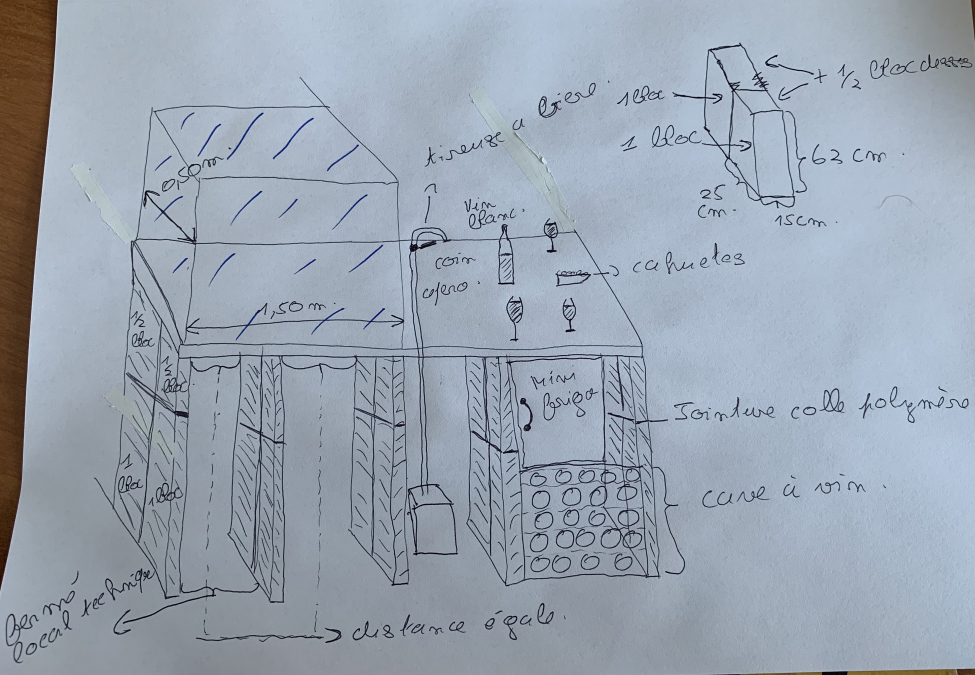 0,50 m.
tireuse a biere.
1 bloc
+ 1/2 bloc dessus
1 bloc
62 cm.
25
cm.
15 cm.
Vin
blanc.
coin
apero.
cahuetes
1,50 m.
1/2
bloc
1/2
bloc
1
bloc
1 bloc
Mini
frigo
Jointure colle polymère
cave à vin.
fermé
local technique
distance égale.